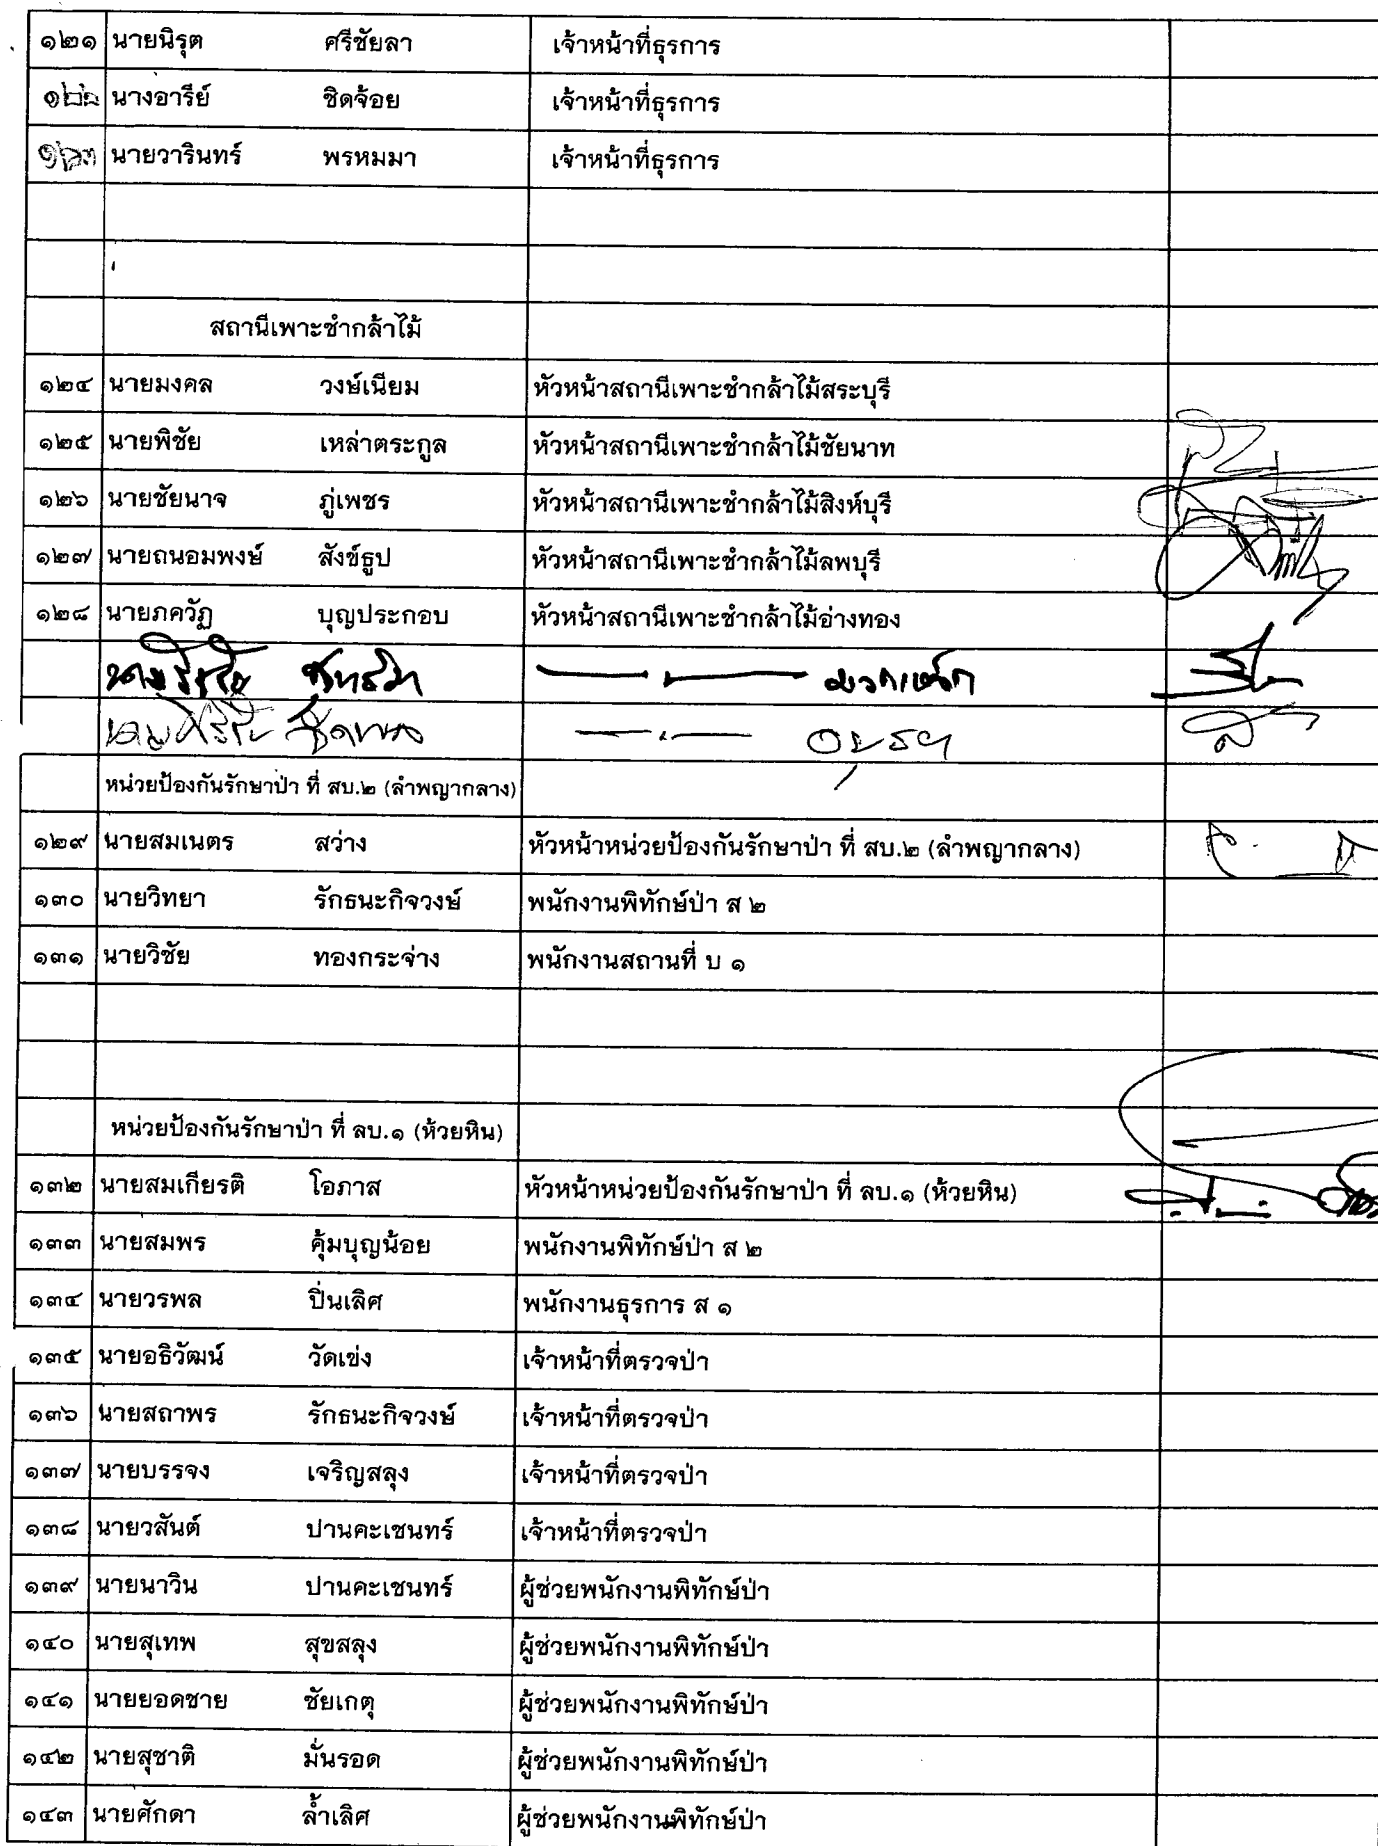 ๑๒๑ นายนิรุต ศรีชัยลา เจ้าหน้าที่ธุรการ
๑๒๒ นางอารีย์ ชิดจ้อย เจ้าหน้าที่ธุรการ
๑๒๓ นายวารินทร์ พรหมมา เจ้าหน้าที่ธุรการ
สถานีเพาะชำกล้าไม้
๑๒๔ นายมงคล วงษ์เนียม หัวหน้าสถานีเพาะชำกล้าไม้สระบุรี
๑๒๕ นายพิชัย เหล่าตระกูล หัวหน้าสถานีเพาะชำกล้าไม้ชัยนาท
๑๒๖ นายชัยนาจ ภู่เพชร หัวหน้าสถานีเพาะชำกล้าไม้สิงห์บุรี
๑๒๗ นายถนอมพงษ์ สังข์ธูป หัวหน้าสถานีเพาะชำกล้าไม้ลพบุรี
๑๒๘ นายภควัฏ บุญประกอบ หัวหน้าสถานีเพาะชำกล้าไม้อ่างทอง
มวกเหล็ก
อยุธยา
หน่วยป้องกันรักษาป่า ที่ สบ.๒ (ลำพญากลาง)
๑๒๙ นายสมเนตร สว่าง หัวหน้าหน่วยป้องกันรักษาป่า ที่ สบ.๒ (ลำพญากลาง)
๑๓๐ นายวิทยา รักธนะกิจวงษ์ พนักงานพิทักษ์ป่า ส ๒
๑๓๑ นายวิชัย ทองกระจ่าง พนักงานสถานที่ บ ๑
หน่วยป้องกันรักษาป่า ที่ ลบ.๑ (ห้วยหิน)
๑๓๒ นายสมเกียรติ โอภาส หัวหน้าหน่วยป้องกันรักษาป่า ที่ ลบ.๑ (ห้วยหิน)
๑๓๓ นายสมพร คุ้มบุญน้อย พนักงานพิทักษ์ป่า ส ๒
๑๓๔ นายวรพล ปิ่นเลิศ พนักงานธุรการ ส ๑
๑๓๕ นายอธิวัฒน์ วัดเข่ง เจ้าหน้าที่ตรวจป่า
๑๓๖ นายสถาพร รักธนะกิจวงษ์ เจ้าหน้าที่ตรวจป่า
๑๓๗ นายบรรจง เจริญสลุง เจ้าหน้าที่ตรวจป่า
๑๓๘ นายวสันต์ ปานคะเชนทร์ เจ้าหน้าที่ตรวจป่า
๑๓๙ นายนาวิน ปานคะเชนทร์ ผู้ช่วยพนักงานพิทักษ์ป่า
๑๔๐ นายสุเทพ สุขสลุง ผู้ช่วยพนักงานพิทักษ์ป่า
๑๔๑ นายยอดชาย ชัยเกตุ ผู้ช่วยพนักงานพิทักษ์ป่า
๑๔๒ นายสุชาติ มั่นรอด ผู้ช่วยพนักงานพิทักษ์ป่า
๑๔๓ นายศักดา ล้ำเลิศ ผู้ช่วยพนักงานพิทักษ์ป่า